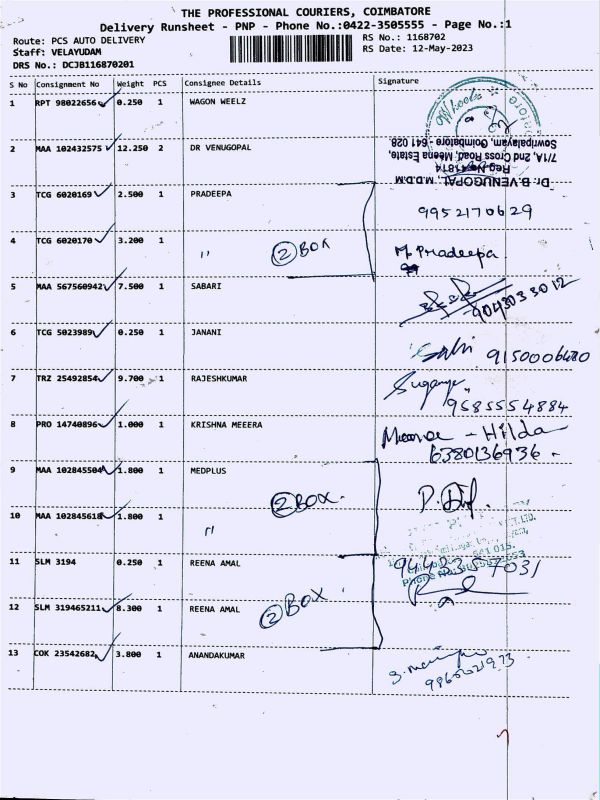 THE PROFESSIONAL COURIERS, COIMBATORE
Delivery Runsheet - PNP - Phone No.:0422-3505555 - Page No.:1
Route: PCS AUTO DELIVERY RS No.: 1168702
Staff: VELAYUDAM RS Date: 12-May-2023
DRS No.: DCJB116870201
S No Consignment No Weight PCS Consignee Details Signature
1 RPT 98022656 0.250 1 WAGON WEELZ
Wheelz
2 MAA 102432575 12.250 2 DR VENUGOPAL
Dr. B. VENUGOPAL, M.D.M
Reg.No:41814
7/1A, 2nd Cross Road, Meena Estate,
Sowripalayam, Coimbatore - 641 028
3 TCG 6020169 2.500 1 PRADEEPA 9952170629
4 TCG 6020170 3.200 1 " 2 BOX M. Pradeepa
5 MAA 567560942 7.500 1 SABARI 9043033012
6 TCG 5023989 0.250 1 JANANI
7 TRZ 25492854 9.700 1 RAJESHKUMAR
9585554884
8 PRO 14740896 1.000 1 KRISHNA MEEERA Meena - Hilda
6380136936 -
9 MAA 102845504 1.800 1 MEDPLUS 2 BOX.
10 MAA 102845618 1.800 1 "
11 SLM 3194 0.250 1 REENA AMAL 9442357031
12 SLM 319465211 8.300 1 REENA AMAL 2 BOX
13 COK 23542682 3.800 1 ANANDAKUMAR